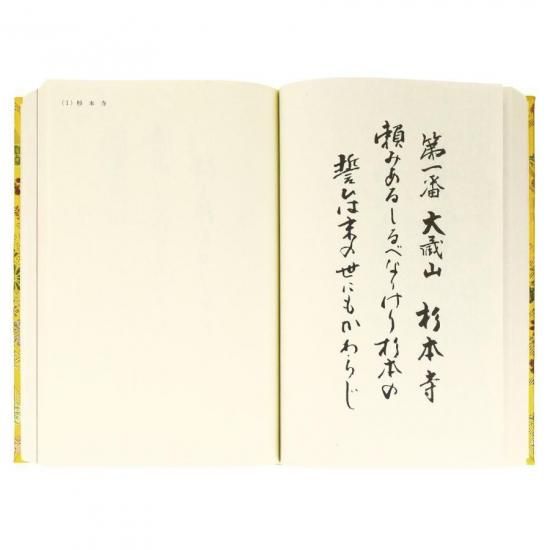 (1) 杉本寺
第一番 大蔵山 杉本寺
頼みあるしるべなりけり杉本の
誓ひは末の世にもかわらじ